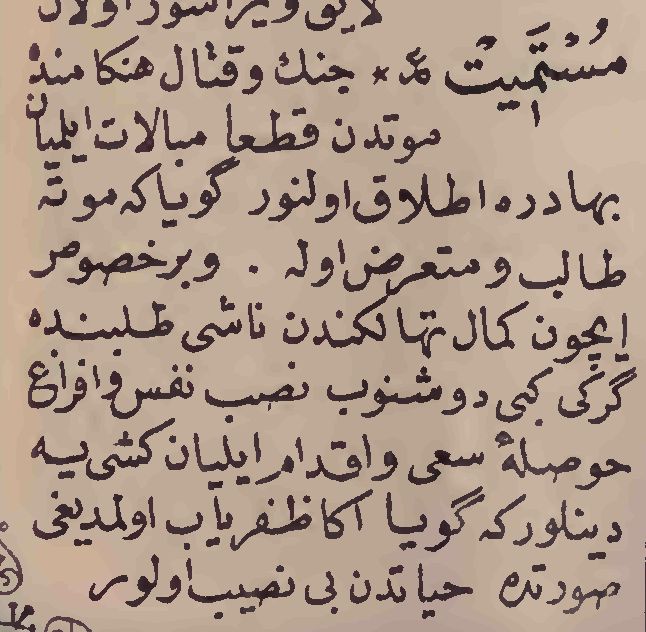 لايق و يراشور اولان
مُسْتَمِيتْ جنك وقتال هنكامنده
موتدن قطعا مبالات ايلميان
بهادره اطلاق اولنور كويا كه موته
طالب و متعرض اوله . وبر خصوص
ايچون كمال تهالكندن ناشى طلبنده
كركى كبى دوشنوب نصب نفس وافراغ
حوصلهٔ سعى واقدام ايليان كشى يه
دينلور كه كويا اكا ظفرياب اولمديغى
صورتده حياتدن بى نصيب اولور